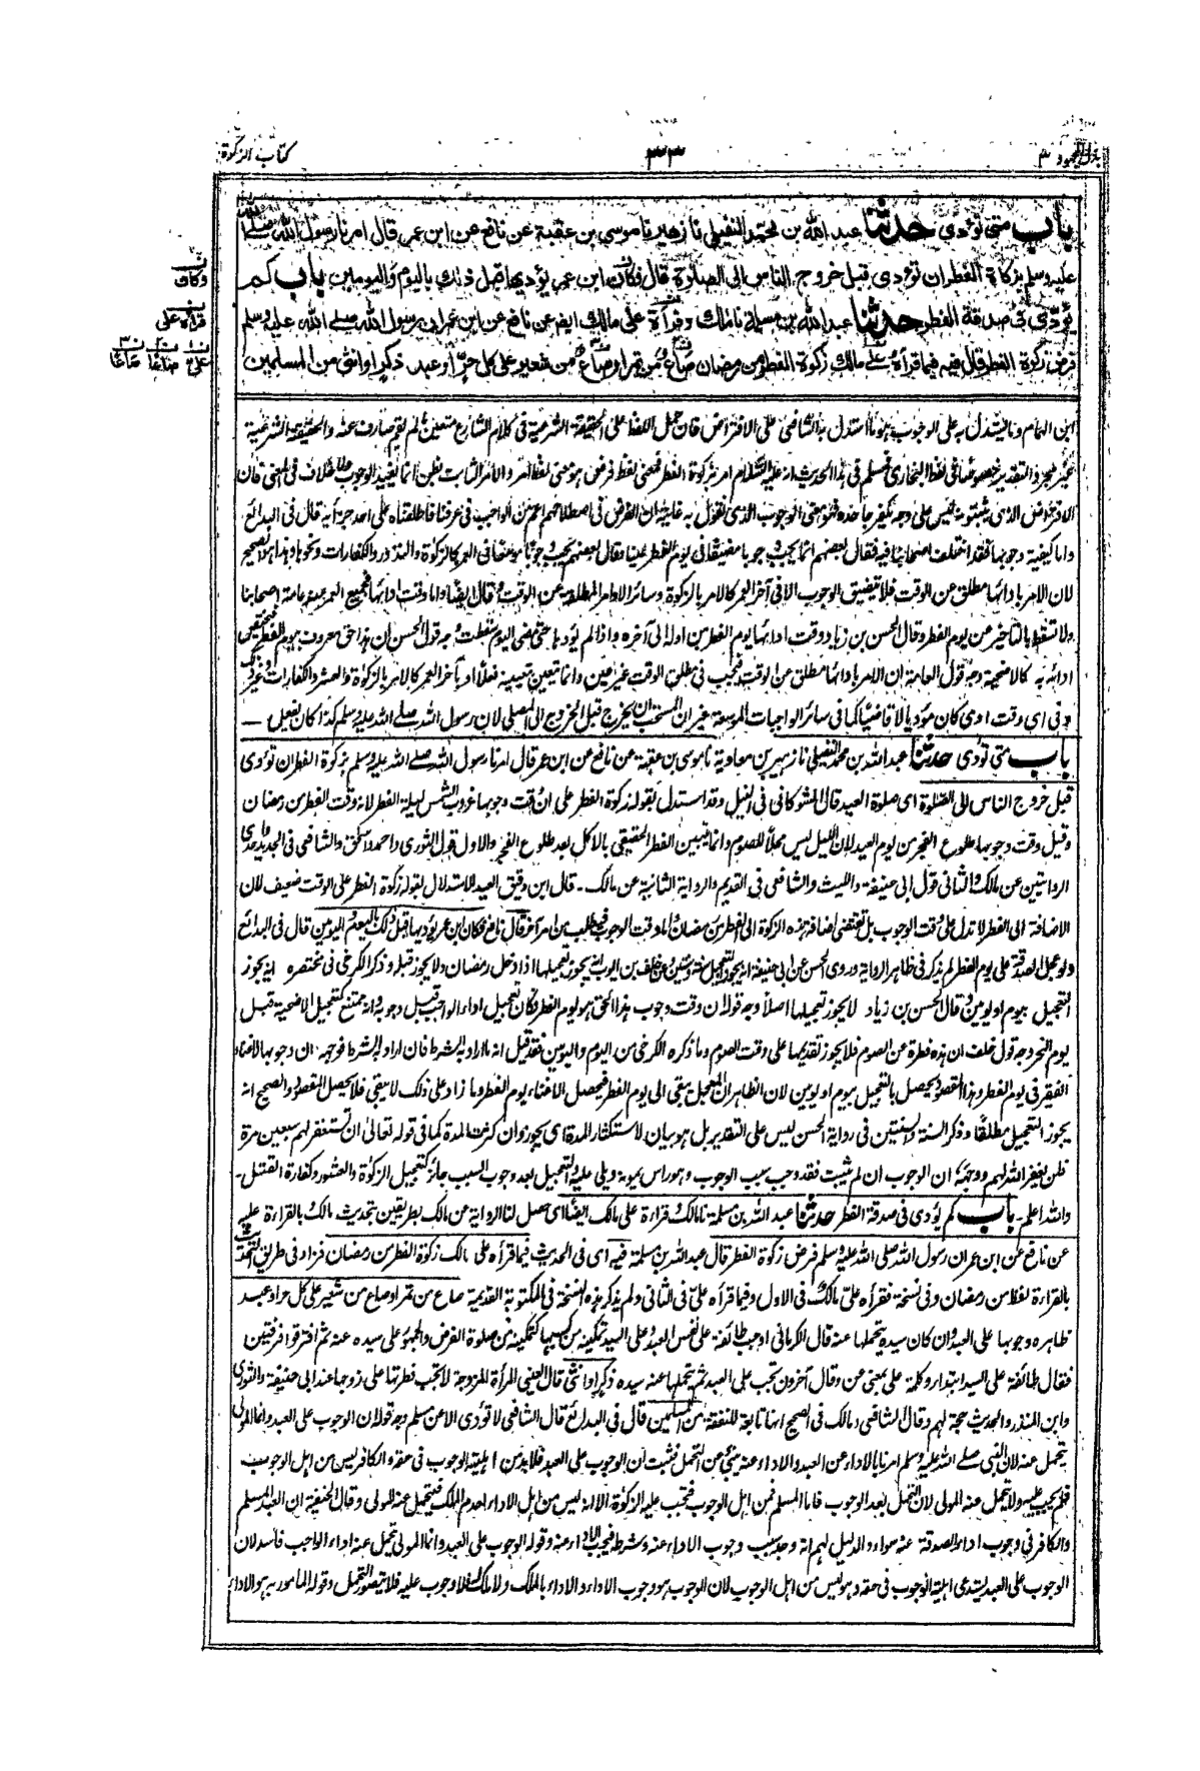 بذل المجهود ٣
٣٣
كتاب الزكوة
باب متى تؤدى حدثنا عبد الله بن محمد النفيلي نا زهير نا موسى بن عقبة عن نافع عن ابن عمر قال امرنا رسول الله صلى الله
عليه وسلم بزكاة الفطر ان تؤدى قبل خروج الناس الى الصلوة قال فكان ابن عمر يؤديها قبل ذلك باليوم واليومين باب كم
يؤدى فى صدقة الفطر حدثنا عبد الله بن مسلمة نا مالك وقرأة على مالك ايضا عن نافع عن ابن عمر ان رسول الله صلى الله عليه وسلم
فرض زكوة الفطر قال فيه فيما قرأه على مالك زكوة الفطر من رمضان صاع من تمر او صاع من شعير على كل حر او عبد ذكر او انثى من المسلمين
ن وكان
ن قراءة على
ن١ على ن٢ صاعا ن٣ صاعا
ابن الهمام وما يستدل به على الوجوب هو ما استدل به الشافعى على الافتراض فان حمل اللفظ على الحقيقة الشرعية فى كلام الشارع متعين ما لم يقم صارف عنه والحقيقة الشرعية
غير مجرد التقدير خصوصا فى لفظ البخارى ومسلم فى هذا الحديث انه عليه السلام امر بزكوة الفطر فمعنى لفظ فرض هو معنى لفظ امر والامر الثابت بظن انما يفيد الوجوب فلا خلاف فى المعنى فان
الافتراض الذى يثبتونه ليس على وجه يكفر جاحده فهو معنى الوجوب الذى نقول به غاية ان الفرض فى اصطلاحهم اعم من الواجب فى عرفنا فاطلقناه على احد جزأيه قال فى البدائع
واما كيفية وجوبها فقد اختلف اصحابنا فيه فقال بعضهم انما يجب وجوبا مضيقا فى يوم الفطر عينا وقال بعضهم يجب وجوبا موسعا فى العمر كالزكوة والنذور والكفارات ونحوها وهذا هو الصحيح
لان الامر بادائها مطلق عن الوقت فلا يتضيق الوجوب الا فى آخر العمر كالامر بالزكوة وسائر الاوامر المطلقة عن الوقت وقال ايضا واما وقت ادائها فجميع العمر عند عامة اصحابنا
ولا تسقط بالتاخير عن يوم الفطر وقال الحسن بن زياد وقت ادائها يوم الفطر من اوله الى آخره واذا لم يؤدها حتى مضى اليوم سقطت وجه قول الحسن ان هذا حق معروف بيوم الفطر فيختص
ادائه به كالاضحية وجه قول العامة ان الامر بادائها مطلق عن الوقت فيجب فى مطلق الوقت غير عين وانما يتعين بتعيينه فعلا او بآخر العمر كالامر بالزكوة والعشر والكفارات وغير ذلك
وفى اى وقت ادى كان مؤديا لا قاضيا كما فى سائر الواجبات الموسعة غير ان المستحب ان يخرج قبل الخروج الى المصلى لان رسول الله صلى الله عليه وسلم كذا كان يفعل ـــ
باب متى تؤدى حدثنا عبد الله بن محمد النفيلي نا زهير بن معاوية نا موسى بن عقبة عن نافع عن ابن عمر قال امرنا رسول الله صلى الله عليه وسلم بزكوة الفطر ان تؤدى
قبل خروج الناس الى الصلوة اى صلوة العيد قال الشوكانى فى النيل وقد استدل بقوله زكوة الفطر على ان وقت وجوبها غروب الشمس ليلة الفطر لانه وقت الفطر من رمضان
وقيل وقت وجوبها طلوع الفجر من يوم العيد لان الليل ليس محلا للصوم وانما يتبين الفطر الحقيقى بالاكل بعد طلوع الفجر والاول قول الثورى واحمد واسحق والشافعى فى الجديد واحدى
الروايتين عن مالك والثانى قول ابى حنيفة والليث والشافعى فى القديم والرواية الثانية عن مالك - قال ابن دقيق العيد الاستدلال بقوله زكوة الفطر على الوقت ضعيف لان
الاضافة الى الفطر لا تدل على وقت الوجوب بل تقتضى اضافة هذه الزكوة الى الفطر من رمضان واما وقت الوجوب فيطلب من امر آخر قال نافع فكان ابن عمر يؤديها قبل ذلك باليوم واليومين قال فى البدائع
ولو عجل الصدقة على يوم الفطر لم يذكر فى ظاهر الرواية وروى الحسن عن ابى حنيفة انه يجوز التعجيل سنة وسنتين وعن خلف بن ايوب انه يجوز تعجيلها اذا دخل رمضان ولا يجوز قبله وذكر الكرخى فى مختصره انه يجوز
التعجيل بيوم او يومين وقال الحسن بن زياد لا يجوز تعجيلها اصلا وجه قوله ان وقت وجوب هذا الحق هو يوم الفطر فكان التعجيل اداء الواجب قبل وجوبه وانه ممتنع كتعجيل الاضحية قبل
يوم النحر وجه قول خلف ان هذه فطرة عن الصوم فلا يجوز تقديمها على وقت الصوم وما ذكره الكرخى من اليوم واليومين فقد قيل انه ما اراد به الشرط فان اراد به الشرط فوجهه ان وجوبها لاغناء
الفقير فى يوم الفطر وهذا المقصود يحصل بالتعجيل بيوم او يومين لان الظاهر ان المعجل يبقى الى يوم الفطر فيحصل الاغناء يوم الفطر وما زاد على ذلك لا يبقى فلا يحصل المقصود والصحيح انه
يجوز التعجيل مطلقا وذكر السنة والسنتين فى رواية الحسن ليس على التقدير بل هو بيان لاستكثار المدة اى يجوز وان كثرت المدة كما فى قوله تعالى ان تستغفر لهم سبعين مرة
فلن يغفر الله لهم ووجهه ان الوجوب ان لم يثبت فقد وجب سبب الوجوب وهو راس يمونه ويلى عليه والتعجيل بعد وجوب السبب جائز كتعجيل الزكوة والعشور وكفارة القتل -
والله اعلم - باب كم يؤدى فى صدقة الفطر حدثنا عبد الله بن مسلمة نا مالك وقراءة على مالك ايضا اى حصل لنا الرواية عن مالك بطريقين بتحديث مالك وبالقراءة عليه
عن نافع عن ابن عمر ان رسول الله صلى الله عليه وسلم فرض زكوة الفطر قال عبد الله بن مسلمة فيه اى فى الحديث فيما قرأه على مالك زكوة الفطر من رمضان فزاد فى طريق التحديث
بالقراءة لفظ من رمضان وفى نسخة فقرأه على مالك فى الاول وفيما قرأه على فى الثانى ولم يذكر هذه النسخة فى المكتوبة القديمة صاع من تمر او صاع من شعير على كل حر او عبد
ظاهره وجوبها على العبد وان كان سيده يتحملها عنه قال الكرمانى اوجب طائفة على نفس العبد وعلى السيد تمكينه من كسبها كتمكينه من صلوة الفرض والجمهور على سيده عنه ثم افترقوا فرقتين
فقال طائفة على السيد ابتداء وكلمة على بمعنى عن وقال آخرون تجب على العبد ثم يتحملها عنه سيده ذكر او انثى قال العينى المرأة المزوجة لا تجب فطرتها على زوجها عند ابى حنيفة والثورى
وابن المنذر والحديث حجة لهم وقال الشافعى ومالك فى الصحيح انها تابعة للنفقة من المسلمين قال فى البدائع قال الشافعى لا تؤدى الا عن مسلم وجه قوله ان الوجوب على العبد وانما المولى
يتحمل عنه لان النبى صلى الله عليه وسلم امرنا بالاداء عن العبد والاداء عنه ينبئ عن التحمل فثبت ان الوجوب على العبد فلا بد من اهلية الوجوب فى حقه والكافر ليس من اهل الوجوب
فلم يجب عليه ولا يتحمل عنه المولى لان التحمل بعد الوجوب فاما المسلم فمن اهل الوجوب فتجب عليه الزكوة الا انه ليس من اهل الاداء لعدم الملك فيتحمل عنه المولى وقال الحنفية ان العبد المسلم
والكافر فى وجوب اداء الصدقة عنه سواء والدليل لهم انه وجد سبب وجوب الاداء عنه وشرطه فيجب الاداء عنه وقوله الوجوب على العبد وانما المولى يتحمل عنه اداء الواجب فاسد لان
الوجوب على العبد يستدعى اهلية الوجوب فى حقه وهو ليس من اهل الوجوب لان الوجوب هو وجوب الاداء والاداء بالملك ولا ملك له فلا وجوب عليه فلا يتصور التحمل وقوله المامور به هو الاداء